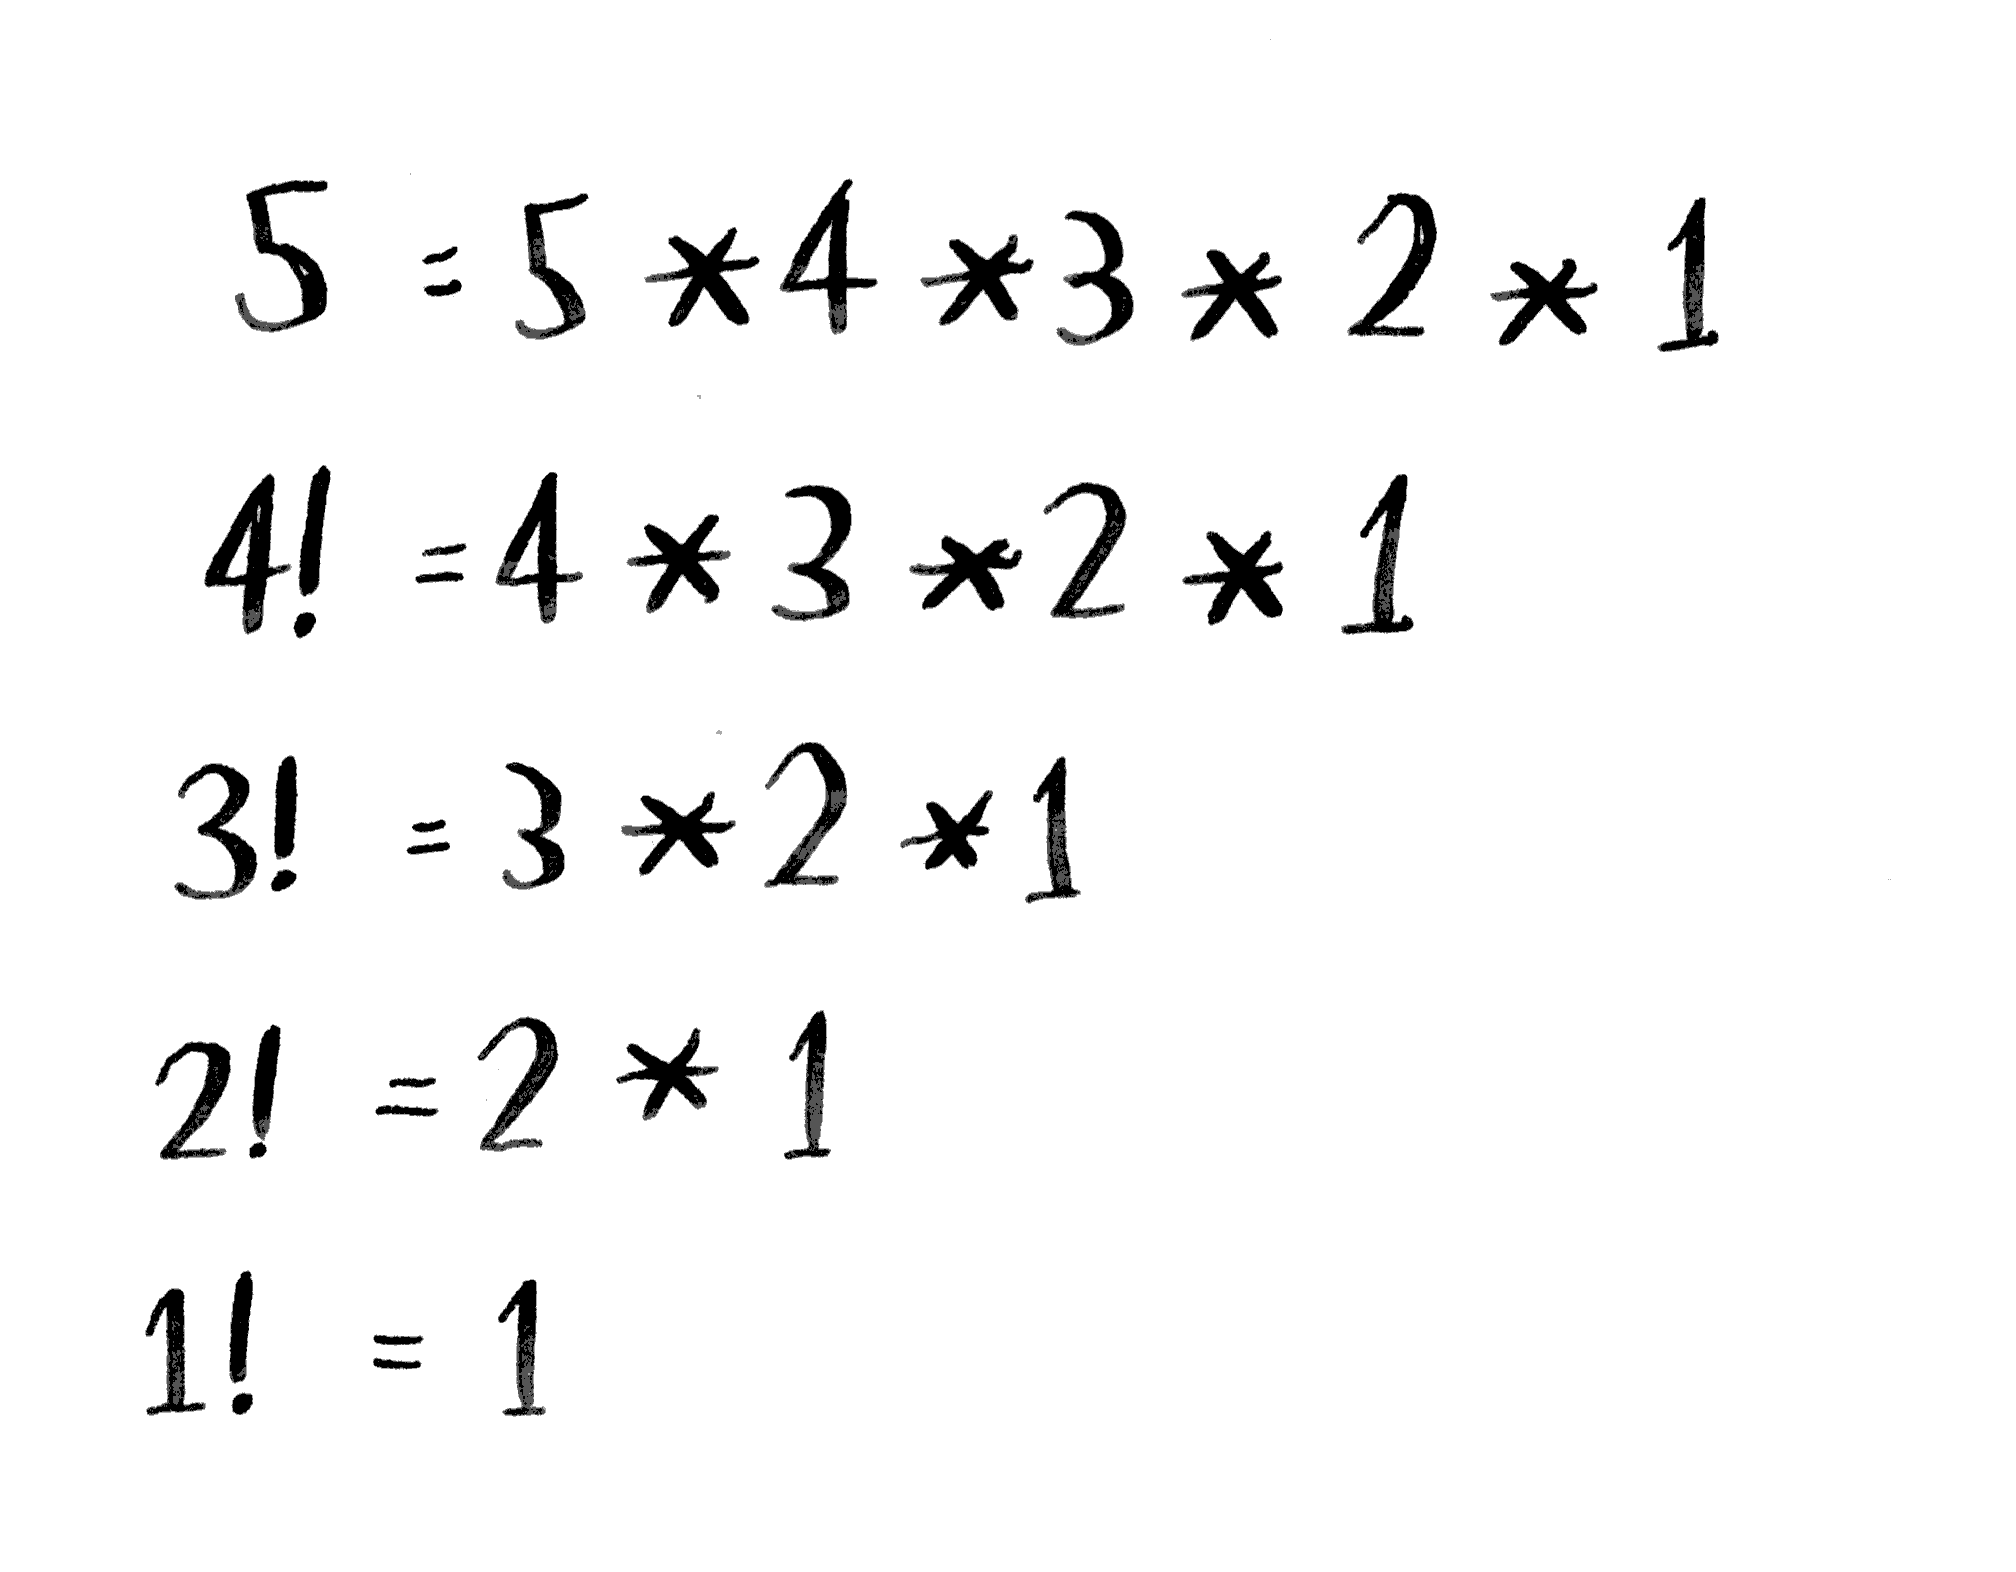 5 = 5 * 4 * 3 * 2 * 1
4! = 4 * 3 * 2 * 1
3! = 3 * 2 * 1
2! = 2 * 1
1! = 1